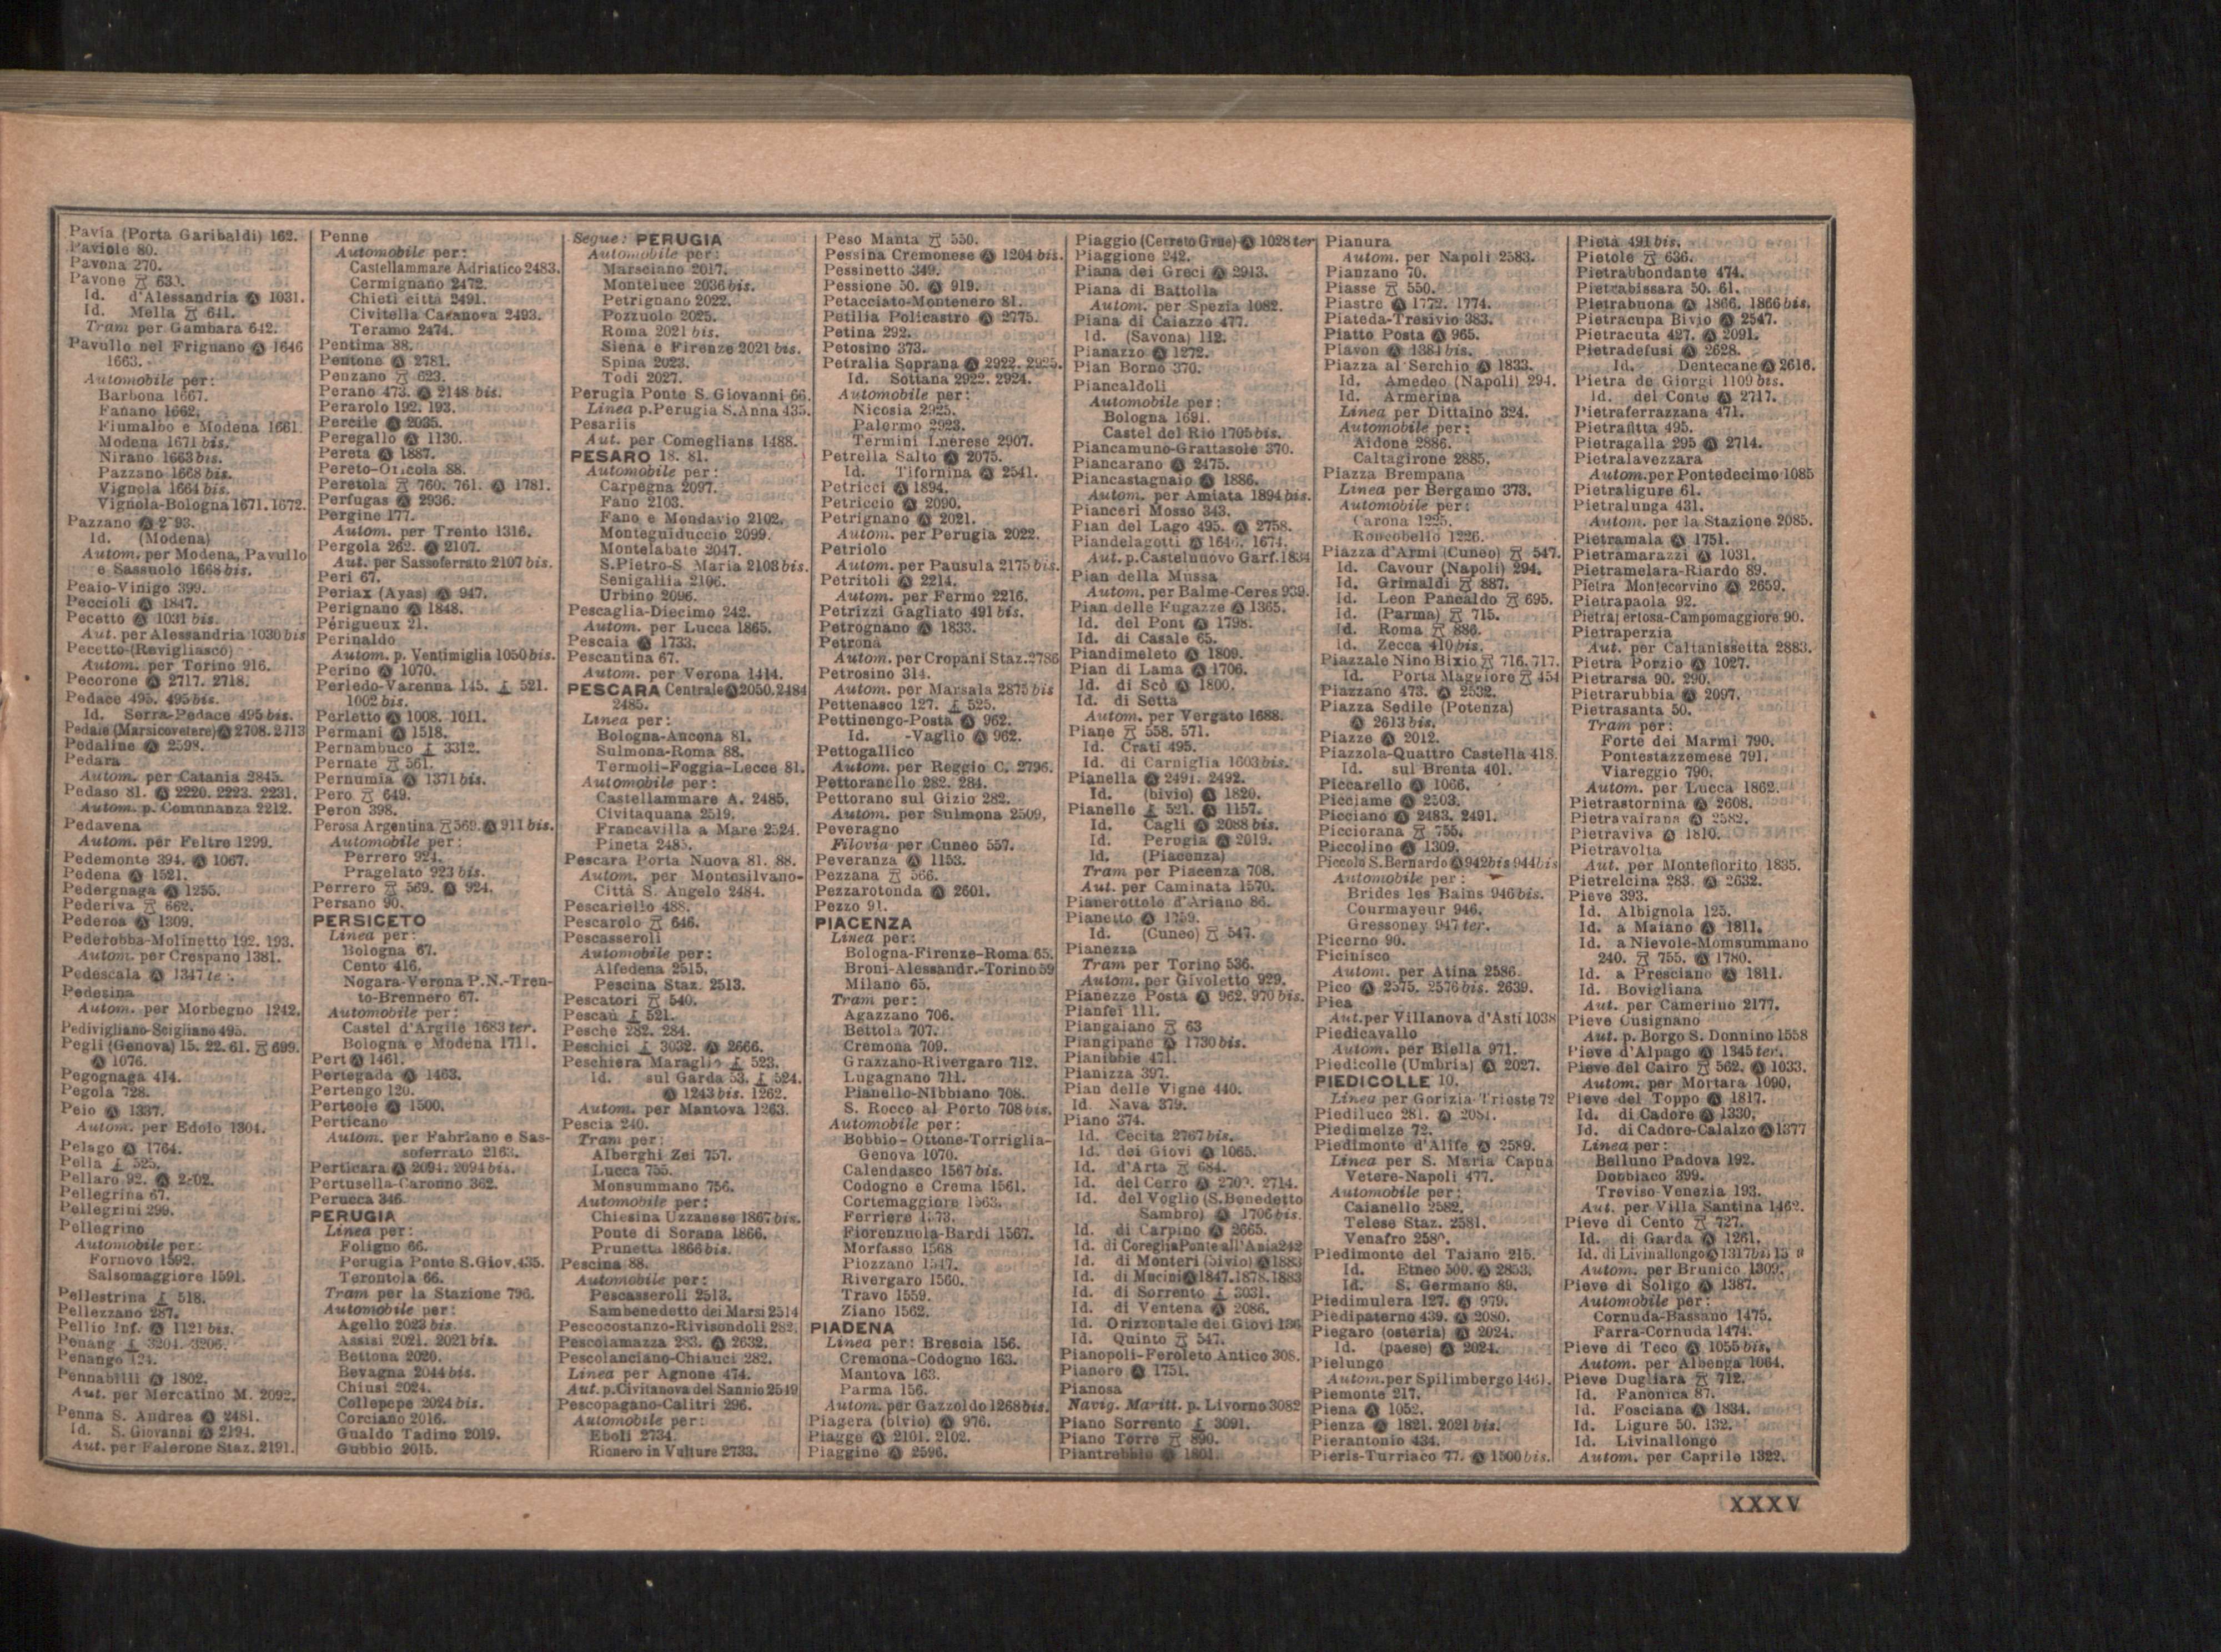 Pavia (Porta Garibaldi) 162.
Paviole 80.
Pavona 270.
Pavone
Id. d'Alessandria Ⓐ 1031.
Id. Mella 641.
Tram per Gambara 642.
Pavullo nel Frignano Ⓐ 1646
1663.
Automobile per:
Barbona 1667.
Fanano 1662.
Fiumalbo e Modena 1661.
Modena 1671 bis.
Nirano 1663 bis.
Pazzano 1668 bis.
Vignola 1664 bis.
Vignola-Bologna 1671. 1672.
Pazzano Ⓐ
Id. (Modena)
Autom. per Modena, Pavullo
e Sassuolo 1668 bis.
Peaio-Vinigo 399.
Peccioli Ⓐ 1847.
Pecetto Ⓐ 1031 bis.
Aut. per Alessandria 1030 bis
Pecetto (Revigliasco)
Autom. per Torino 916.
Pecorone Ⓐ 2717. 2718.
Pedace 495. 495 bis.
Id. Serra-Pedace 495 bis.
Pedale (Marsicovetere) Ⓐ 2708. 2713
Pedaline Ⓐ 2598.
Pedara
Autom. per Catania 2845.
Pedaso 81. Ⓐ 2220. 2223. 2231.
Autom. p. Comunanza 2212.
Pedavena
Autom. per Feltre 1299.
Pedemonte 394. Ⓐ 1067.
Pedena Ⓐ 1521.
Pedergnaga Ⓐ 1255.
Pederiva 662.
Pederoa Ⓐ 1309.
Pederobba-Molinetto 192. 193.
Autom. per Crespano 1381.
Pedescala Ⓐ 1347
Pedesina
Autom. per Morbegno 1242.
Pedivigliano-Scigliano 495.
Pegli (Genova) 15. 22. 61. 699.
Ⓐ 1076.
Pegognaga 414.
Pegola 728.
Peio Ⓐ 1337.
Autom. per Edolo 1304.
Pelago Ⓐ 1764.
Pella 525.
Pellaro 92. Ⓐ
Pellegrina 67.
Pellegrini 299.
Pellegrino
Automobile per:
Fornovo 1592.
Salsomaggiore 1591.
Pellestrina 518.
Pellezzano 287.
Pellio Inf. Ⓐ 1121 bis.
Penang 3204. 3206.
Penango 124.
Pennabilli Ⓐ 1802.
Aut. per Mercatino M. 2092.
Penna S. Andrea Ⓐ 2481.
Id. S. Giovanni Ⓐ 2194.
Aut. per Falerone Staz. 2191.
Penne
Automobile per:
Castellammare Adriatico 2483.
Cermignano 2472.
Chieti città 2491.
Civitella Casanova 2493.
Teramo 2474.
Pentima 88.
Pentone Ⓐ 2781.
Penzano 623.
Perano 473. Ⓐ 2148 bis.
Perarolo 192. 193.
Percile Ⓐ 2035.
Peregallo Ⓐ 1130.
Pereta Ⓐ 1887.
Pereto-Oricola 88.
Peretola 760. 761. Ⓐ 1781.
Perfugas Ⓐ 2936.
Pergine 177.
Autom. per Trento 1316.
Pergola 262. Ⓐ 2107.
Aut. per Sassoferrato 2107 bis.
Peri 67.
Periax (Ayas) Ⓐ 947.
Perignano Ⓐ 1848.
Périgueux 21.
Perinaldo
Autom. p. Ventimiglia 1050 bis.
Perino Ⓐ 1070.
Perledo-Varenna 145. 521.
1002 bis.
Perletto Ⓐ 1008. 1011.
Permani Ⓐ 1518.
Pernambuco 3312.
Pernate 561.
Pernumia Ⓐ 1371 bis.
Pero 649.
Peron 398.
Perosa Argentina 569. Ⓐ 911 bis.
Automobile per:
Perrero 924.
Pragelato 923 bis.
Perrero 569. Ⓐ 924.
Persano 90.
PERSICETO
Linea per:
Bologna 67.
Cento 416.
Nogara-Verona P.N.-Tren-
to-Brennero 67.
Automobile per:
Castel d'Argile 1683 ter.
Bologna e Modena 1711.
Pert Ⓐ 1461.
Pertegada Ⓐ 1463.
Pertengo 126.
Perteole Ⓐ 1500.
Perticano
Autom. per Fabriano e Sas-
soferrato 2163.
Perticara Ⓐ 2094. 2094 bis.
Pertusella-Caronno 362.
Perucca 346.
PERUGIA
Linea per:
Foligno 66.
Perugia Ponte S.Giov. 435.
Terontola 66.
Tram per la Stazione 796.
Automobile per:
Agello 2023 bis.
Assisi 2021. 2021 bis.
Bettona 2020.
Bevagna 2044 bis.
Chiusi 2024.
Collepepe 2024 bis.
Corciano 2016.
Gualdo Tadino 2019.
Gubbio 2015.
Segue: PERUGIA
Automobile per:
Marsciano 2017.
Monteluce 2036 bis.
Petrignano 2022.
Pozzuolo 2025.
Roma 2021 bis.
Siena e Firenze 2021 bis.
Spina 2023.
Todi 2027.
Perugia Ponte S. Giovanni 66.
Linea p. Perugia S. Anna 435.
Pesariis
Aut. per Comeglians 1488.
PESARO 18. 81.
Automobile per:
Carpegna 2097.
Fano 2103.
Fano e Mondavio 2102.
Monteguiduccio 2099.
Montelabate 2047.
S.Pietro-S. Maria 2103 bis.
Senigallia 2106.
Urbino 2096.
Pescaglia-Diecimo 242.
Autom. per Lucca 1865.
Pescaia Ⓐ 1733.
Pescantina 67.
Autom. per Verona 1414.
PESCARA Centrale Ⓐ 2050. 2484
2485.
Linea per:
Bologna-Ancona 81.
Sulmona-Roma 88.
Termoli-Foggia-Lecce 81.
Automobile per:
Castellammare A. 2485.
Civitaquana 2519.
Francavilla a Mare 2524.
Pineta 2485.
Pescara Porta Nuova 81. 88.
Autom. per Montesilvano-
Città S. Angelo 2484.
Pescariello 488.
Pescarolo 646.
Pescasseroli
Automobile per:
Alfedena 2515.
Pescina Staz. 2513.
Pescatori 540.
Pescaù 521.
Pesche 282. 284.
Peschici 3032. Ⓐ 2666.
Peschiera Maraglio 523.
Id. sul Garda 53. 524.
Ⓐ 1243 bis. 1262.
Autom. per Mantova 1263.
Pescia 240.
Tram per:
Alberghi Zei 757.
Lucca 755.
Monsummano 756.
Automobile per:
Chiesina Uzzanese 1867 bis.
Ponte di Sorana 1866.
Prunetta 1866 bis.
Pescina 88.
Automobile per:
Pescasseroli 2513.
Sambenedetto dei Marsi 2514
Pescocostanzo-Rivisondoli 282.
Pescolamazza 283. Ⓐ 2632.
Pescolanciano-Chiauci 282.
Linea per Agnone 474.
Aut. p. Civitanova del Sannio 2549
Pescopagano-Calitri 296.
Automobile per:
Eboli 2734.
Rionero in Vulture 2733.
Peso Manta 550.
Pessina Cremonese Ⓐ 1204 bis.
Pessinetto 349.
Pessione 50. Ⓐ 919.
Petacciato-Montenero 81.
Petilia Policastro Ⓐ 2775.
Petina 292.
Petosino 373.
Petralia Soprana Ⓐ 2922. 2925.
Id. Sottana 2922. 2924.
Automobile per:
Nicosia 2925.
Palermo 2923.
Termini Imerese 2907.
Petrella Salto Ⓐ 2075.
Id. Tifernina Ⓐ 2541.
Petricci Ⓐ 1894.
Petriccio Ⓐ 2090.
Petrignano Ⓐ 2021.
Autom. per Perugia 2022.
Petriolo
Autom. per Pausula 2175 bis.
Petritoli Ⓐ 2214.
Autom. per Fermo 2216.
Petrizzi Gagliato 491 bis.
Petrognano Ⓐ 1833.
Petronà
Autom. per Cropani Staz. 2786
Petrosino 314.
Autom. per Marsala 2875 bis
Pettenasco 127. 525.
Pettinengo-Posta Ⓐ 962.
Id. -Vaglio Ⓐ 962.
Pettogallico
Autom. per Reggio C. 2796.
Pettoranello 282. 284.
Pettorano sul Gizio 282.
Autom. per Sulmona 2509.
Peveragno
Filovia per Cuneo 557.
Peveranza Ⓐ 1153.
Pezzana 566.
Pezzarotonda Ⓐ 2601.
Pezzo 91.
PIACENZA
Linea per:
Bologna-Firenze-Roma 65.
Broni-Alessandr.-Torino 59
Milano 65.
Tram per:
Agazzano 706.
Bettola 707.
Cremona 709.
Grazzano-Rivergaro 712.
Lugagnano 711.
Pianello-Nibbiano 708.
S. Rocco al Porto 708 bis.
Automobile per:
Bobbio-Ottone-Torriglia-
Genova 1070.
Calendasco 1567 bis.
Codogno e Crema 1561.
Cortemaggiore 1563.
Ferriere 1573.
Fiorenzuola-Bardi 1567.
Morfasso 1568
Piozzano
Rivergaro 1560.
Travo 1559.
Ziano 1562.
PIADENA
Linea per: Brescia 156.
Cremona-Codogno 163.
Mantova 163.
Parma 156.
Autom. per Gazzoldo 1268 bis.
Piagera (bivio) Ⓐ 976.
Piagge Ⓐ 2101. 2102.
Piaggine Ⓐ 2596.
Piaggio (Cerreto Grue) Ⓐ 1028 ter
Piaggione 242.
Piana dei Greci Ⓐ 2913.
Piana di Battolla
Autom. per Spezia 1082.
Piana di Caiazzo 477.
Id. (Savona) 112.
Pianazzo Ⓐ 1272.
Pian Borno 370.
Piancaldoli
Automobile per:
Bologna 1691.
Castel del Rio 1705 bis.
Piancamuno-Grattasole 370.
Piancarano Ⓐ 2475.
Piancastagnaio Ⓐ 1886.
Autom. per Amiata 1894 bis.
Pianceri Mosso 343.
Pian del Lago 495. Ⓐ 2758.
Piandelagotti Ⓐ 1646. 1674.
Aut. p. Castelnuovo Garf. 1834
Pian della Mussa
Autom. per Balme-Ceres 939.
Pian delle Fugazze Ⓐ 1365.
Id. del Pont Ⓐ 1798.
Id. di Casale 65.
Piandimeleto Ⓐ 1809.
Pian di Lama Ⓐ 1706.
Id. di Scò Ⓐ 1800.
Id. di Setta
Autom. per Vergato 1688.
Piane 558. 571.
Id. Crati 495.
Id. di Carniglia 1603 bis.
Pianella Ⓐ 2491. 2492.
Id. (bivio) Ⓐ 1820.
Pianello 521. Ⓐ 1157.
Id. Cagli Ⓐ 2088 bis.
Id. Perugia Ⓐ 2019.
Id. (Piacenza)
Tram per Piacenza 708.
Aut. per Caminata 1570.
Pianerottolo d'Ariano 86.
Pianetto Ⓐ
Id. (Cuneo) 547.
Pianezza
Tram per Torino 536.
Autom. per Givoletto 929.
Pianezze Posta Ⓐ 962. 970 bis.
Pianfei 111.
Piangaiano 63
Piangipane Ⓐ 1730 bis.
Pianibbie 471.
Pianizza 397.
Pian delle Vigne 440.
Id. Nava 379.
Piano 374.
Id. Cecita 2767 bis.
Id. dei Giovi Ⓐ 1065.
Id. d'Arta 684.
Id. del Cerro Ⓐ 2714.
Id. del Voglio (S. Benedetto
Sambro) Ⓐ 1706 bis.
Id. di Carpino Ⓐ 2665.
Id. di Coreglia Ponte all'Ania 242
Id. di Monteri (bivio) Ⓐ 1883
Id. di Mucini Ⓐ 1847. 1878. 1883
Id. di Sorrento 3031.
Id. di Ventena Ⓐ 2086.
Id. Orizzontale dei Giovi 136
Id. Quinto 547.
Pianopoli-Feroleto Antico 308.
Pianoro Ⓐ 1751.
Pianosa
Navig. Maritt. p. Livorno 3082
Piano Sorrento 3091.
Piano Torre 890.
Piantrebbio Ⓐ 1801.
Pianura
Autom. per Napoli 2583.
Pianzano 70.
Piasse 550.
Piastre Ⓐ 1772. 1774.
Piateda-Tresivio 383.
Piatto Posta Ⓐ 965.
Piavon Ⓐ 1384 bis.
Piazza al Serchio Ⓐ 1833.
Id. Amedeo (Napoli) 294.
Id. Armerina
Linea per Dittaino 324.
Automobile per:
Aidone 2886.
Caltagirone 2885.
Piazza Brempana
Linea per Bergamo 373.
Automobile per:
Carona 1225.
Roncobello 1226.
Piazza d'Armi (Cuneo) 547.
Id. Cavour (Napoli) 294.
Id. Grimaldi 887.
Id. Leon Pancaldo 695.
Id. (Parma) 715.
Id. Roma 886.
Id. Zecca 410 bis.
Piazzale Nino Bixio 716. 717.
Id. Porta Maggiore 454
Piazzano 473. Ⓐ 2532.
Piazza Sedile (Potenza)
Ⓐ 2613 bis.
Piazze Ⓐ 2012.
Piazzola-Quattro Castella 418.
Id. sul Brenta 401.
Piccarello Ⓐ 1066.
Picciame Ⓐ 2503.
Picciano Ⓐ 2483. 2491.
Picciorana 755.
Piccolino Ⓐ 1309.
Piccolo S. Bernardo Ⓐ 942 bis 944 bis
Automobile per:
Brides les Bains 946 bis.
Courmayeur 946.
Gressoney 947 ter.
Picerno 90.
Picinisco
Autom. per Atina 2586.
Pico Ⓐ 2575. 2576 bis. 2639.
Piea
Aut. per Villanova d'Asti 1038
Piedicavallo
Autom. per Biella 971.
Piedicolle (Umbria) Ⓐ 2027.
PIEDICOLLE 10.
Linea per Gorizia-Trieste 72
Piediluco 281. Ⓐ 2081.
Piedimelze 72.
Piedimonte d'Alife Ⓐ 2589.
Linea per S. Maria Capua
Vetere-Napoli 477.
Automobile per:
Caianello 2582.
Telese Staz. 2581.
Venafro
Piedimonte del Taiano 215.
Id. Etneo 500. Ⓐ 2853.
Id. S. Germano 89.
Piedimulera 127. Ⓐ 979.
Piedipaterno 439. Ⓐ 2080.
Piegaro (osteria) Ⓐ 2024.
Id. (paese) Ⓐ 2024.
Pielungo
Autom. per Spilimbergo 1461.
Piemonte 217.
Piena Ⓐ 1052.
Pienza Ⓐ 1821. 2021 bis.
Pierantonio 434.
Pieris-Turriaco 77. Ⓐ 1500 bis.
Pietà 491 bis.
Pietole 636.
Pietrabbondante 474.
Pietrabissara 50. 61.
Pietrabuona Ⓐ 1866. 1866 bis.
Pietracupa Bivio Ⓐ 2547.
Pietracuta 427. Ⓐ 2091.
Pietradefusi Ⓐ 2628.
Id. Dentecane Ⓐ 2616.
Pietra de Giorgi 1109 bis.
Id. del Conte Ⓐ 2717.
Pietraferrazzana 471.
Pietrafitta 495.
Pietragalla 295 Ⓐ 2714.
Pietralavezzara
Autom. per Pontedecimo 1085
Pietraligure 61.
Pietralunga 431.
Autom. per la Stazione 2085.
Pietramala Ⓐ 1751.
Pietramarazzi Ⓐ 1031.
Pietramelara-Riardo 89.
Pietra Montecorvino Ⓐ 2659.
Pietrapaola 92.
Pietrapertosa-Campomaggiore 90.
Pietraperzia
Aut. per Caltanissetta 2883.
Pietra Porzio Ⓐ 1027.
Pietrarsa 90. 290.
Pietrarubbia Ⓐ 2097.
Pietrasanta 50.
Tram per:
Forte dei Marmi 790.
Pontestazzemese 791.
Viareggio 790.
Autom. per Lucca 1862.
Pietrastornina Ⓐ 2608.
Pietravairana Ⓐ 2582.
Pietraviva Ⓐ 1810.
Pietravolta
Aut. per Montefiorito 1835.
Pietrelcina 283. Ⓐ 2632.
Pieve 393.
Id. Albignola 125.
Id. a Maiano Ⓐ 1811.
Id. a Nievole-Momsummano
240. 755. Ⓐ 1780.
Id. a Presciano Ⓐ 1811.
Id. Bovigliana
Aut. per Camerino 2177.
Pieve Cusignano
Aut. p. Borgo S. Donnino 1558
Pieve d'Alpago Ⓐ 1345 ter.
Pieve del Cairo 562. Ⓐ 1033.
Autom. per Mortara 1090.
Pieve del Toppo Ⓐ 1817.
Id. di Cadore Ⓐ 1330.
Id. di Cadore-Calalzo Ⓐ 1377
Linea per:
Belluno Padova 192.
Dobbiaco 399.
Treviso-Venezia 193.
Aut. per Villa Santina 1462.
Pieve di Cento 727.
Id. di Garda Ⓐ 1261.
Id. di Livinallongo Ⓐ 1317 bis
Autom. per Brunico 1309.
Pieve di Soligo Ⓐ 1387.
Automobile per:
Cornuda-Bassano 1475.
Farra-Cornuda 1474.
Pieve di Teco Ⓐ 1055 bis.
Autom. per Albenga 1064.
Pieve Dugliara 712.
Id. Fanonica 87.
Id. Fosciana Ⓐ 1834.
Id. Ligure 50. 132.
Id. Livinallongo
Autom. per Caprile 1322.
XXXV